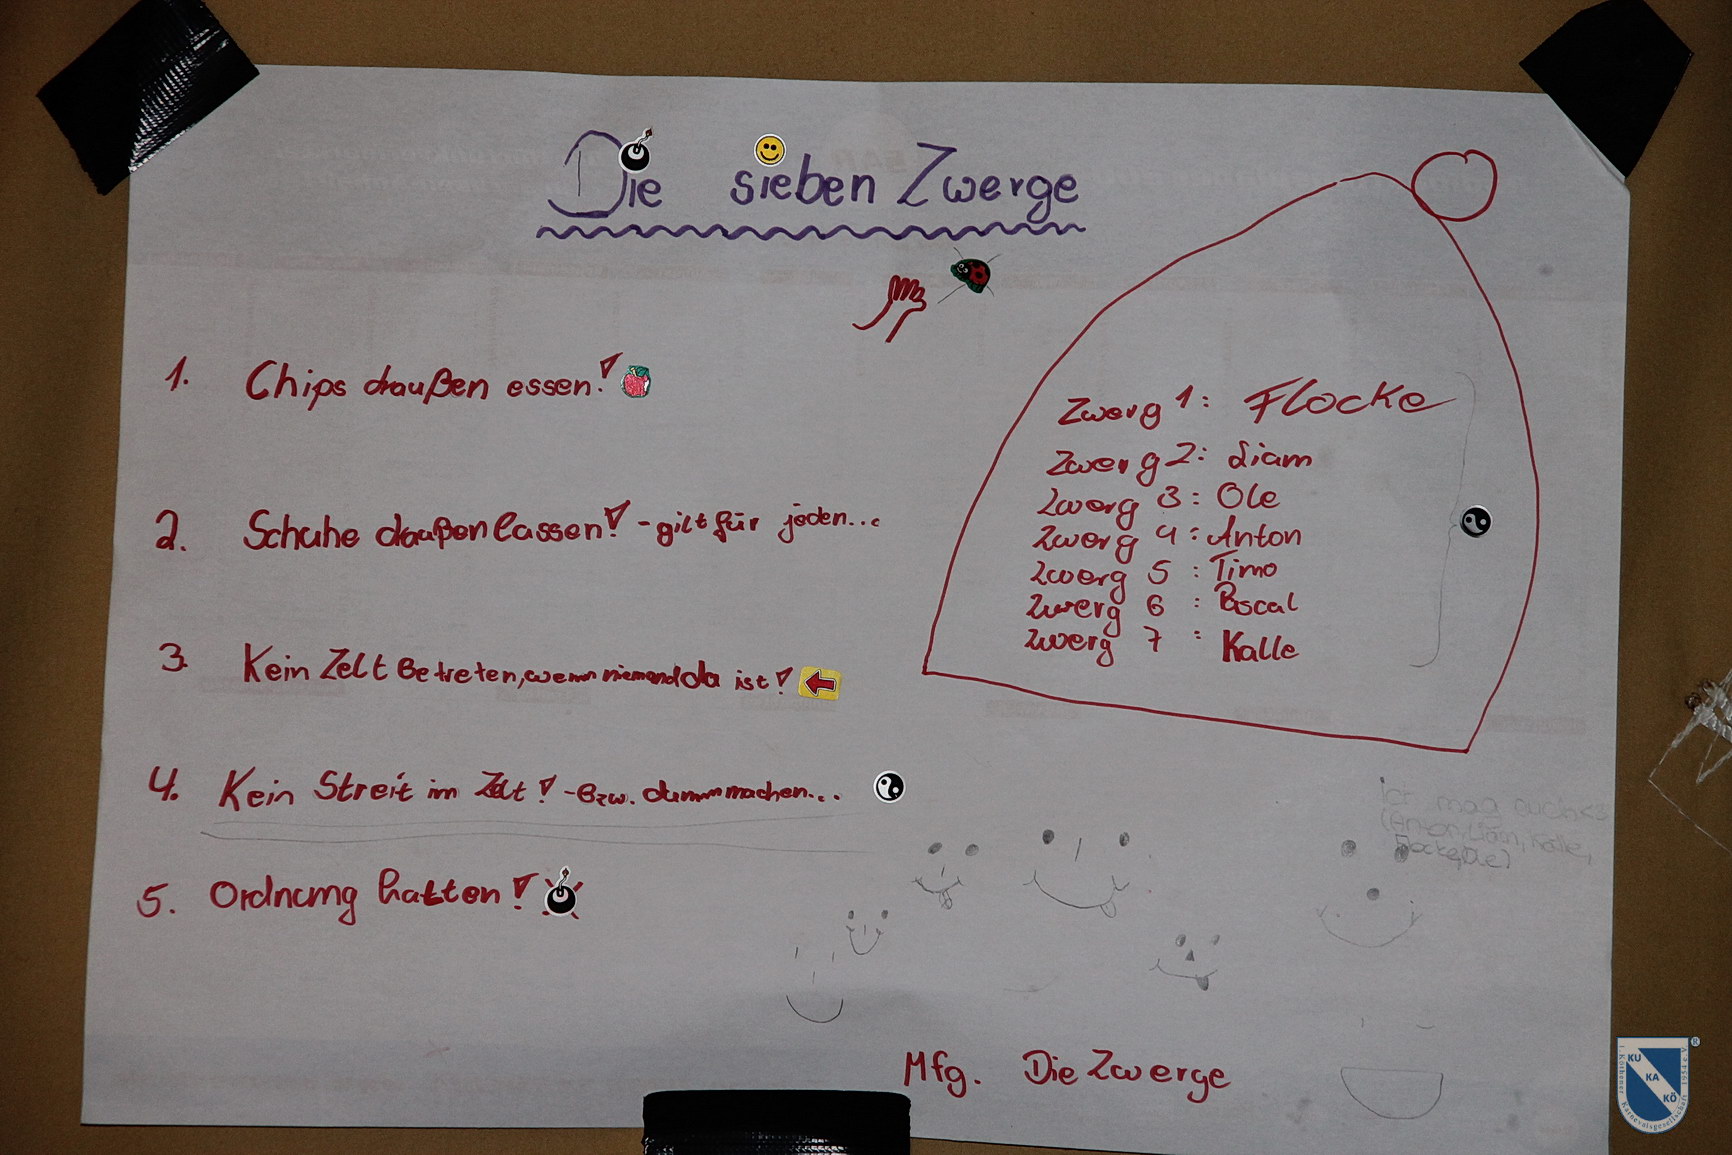 Die sieben Zwerge
1. Chips draußen essen!
2. Schuhe draußen lassen! - gilt für jeden...
3. Kein Zelt Betreten, wenn niemand da ist!
4. Kein Streit im Zelt! - Bzw. dumm machen...
5. Ordnung halten!
Zwerg 1: Flocke
Zwerg 2: Liam
Zwerg 3: Ole
Zwerg 4: Anton
Zwerg 5: Timo
Zwerg 6: Pascal
Zwerg 7: Kalle
mag euch
(Anton, Liam, Kalle,
Flocke, Ole)
Mfg. Die Zwerge
KU
KA
KÖ
1. Köthener Karnevalsgesellschaft 1954 e.V.
®